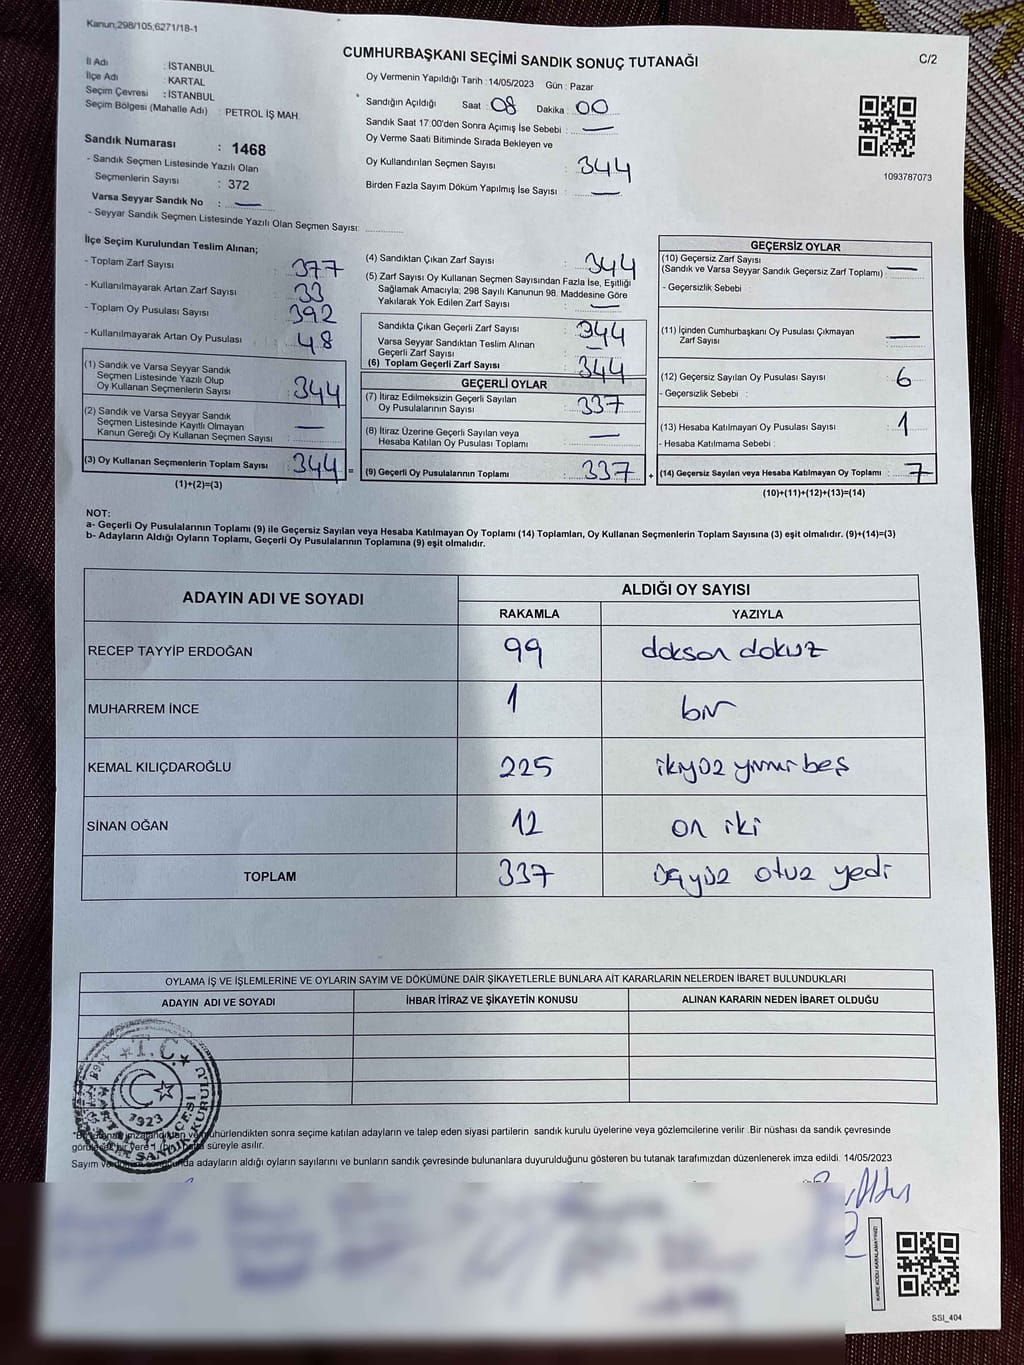 Kanun;298/105,6271/18-1
CUMHURBAŞKANI SEÇİMİ SANDIK SONUÇ TUTANAĞI
C/2
İl Adı : İSTANBUL
İlçe Adı : KARTAL
Seçim Çevresi : İSTANBUL
Seçim Bölgesi (Mahalle Adı) : PETROL İŞ MAH.
Sandık Numarası : 1468
- Sandık Seçmen Listesinde Yazılı Olan
Seçmenlerin Sayısı : 372
Varsa Seyyar Sandık No : —
- Seyyar Sandık Seçmen Listesinde Yazılı Olan Seçmen Sayısı:
Oy Vermenin Yapıldığı Tarih : 14/05/2023 Gün : Pazar
Sandığın Açıldığı Saat : 08 Dakika : 00
Sandık Saat 17:00'den Sonra Açımış İse Sebebi : —
Oy Verme Saati Bitiminde Sırada Bekleyen ve
Oy Kullandırılan Seçmen Sayısı : 344
Birden Fazla Sayım Döküm Yapılmış İse Sayısı : —
1093787073
İlçe Seçim Kurulundan Teslim Alınan;
- Toplam Zarf Sayısı : 377
- Kullanılmayarak Artan Zarf Sayısı : 33
- Toplam Oy Pusulası Sayısı : 392
- Kullanılmayarak Artan Oy Pusulası : 48
(1) Sandık ve Varsa Seyyar Sandık
Seçmen Listesinde Yazılı Olup
Oy Kullanan Seçmenlerin Sayısı : 344
(2) Sandık ve Varsa Seyyar Sandık
Seçmen Listesinde Kayıtlı Olmayan
Kanun Gereği Oy Kullanan Seçmen Sayısı : —
(3) Oy Kullanan Seçmenlerin Toplam Sayısı : 344 =
(1)+(2)=(3)
(4) Sandıktan Çıkan Zarf Sayısı : 344
(5) Zarf Sayısı Oy Kullanan Seçmen Sayısından Fazla İse, Eşitliği
Sağlamak Amacıyla; 298 Sayılı Kanunun 98. Maddesine Göre
Yakılarak Yok Edilen Zarf Sayısı : —
Sandıkta Çıkan Geçerli Zarf Sayısı : 344
Varsa Seyyar Sandıktan Teslim Alınan
Geçerli Zarf Sayısı : —
(6) Toplam Geçerli Zarf Sayısı : 344
GEÇERLİ OYLAR
(7) İtiraz Edilmeksizin Geçerli Sayılan
Oy Pusulalarının Sayısı : 337
(8) İtiraz Üzerine Geçerli Sayılan veya
Hesaba Katılan Oy Pusulası Toplamı : —
(9) Geçerli Oy Pusulalarının Toplamı : 337 +
GEÇERSİZ OYLAR
(10) Geçersiz Zarf Sayısı
(Sandık ve Varsa Seyyar Sandık Geçersiz Zarf Toplamı) : —
- Geçersizlik Sebebi :
(11) İçinden Cumhurbaşkanı Oy Pusulası Çıkmayan
Zarf Sayısı : —
(12) Geçersiz Sayılan Oy Pusulası Sayısı : 6
- Geçersizlik Sebebi :
(13) Hesaba Katılmayan Oy Pusulası Sayısı : 1
- Hesaba Katılmama Sebebi :
(14) Geçersiz Sayılan veya Hesaba Katılmayan Oy Toplamı : 7
(10)+(11)+(12)+(13)=(14)
NOT:
a- Geçerli Oy Pusulalarının Toplamı (9) ile Geçersiz Sayılan veya Hesaba Katılmayan Oy Toplamı (14) Toplamları, Oy Kullanan Seçmenlerin Toplam Sayısına (3) eşit olmalıdır. (9)+(14)=(3)
b- Adayların Aldığı Oyların Toplamı, Geçerli Oy Pusulalarının Toplamına (9) eşit olmalıdır.
ADAYIN ADI VE SOYADI
ALDIĞI OY SAYISI
RAKAMLA YAZIYLA
RECEP TAYYİP ERDOĞAN 99 doksan dokuz
MUHARREM İNCE 1 bir
KEMAL KILIÇDAROĞLU 225 ikiyüz yirmi beş
SİNAN OĞAN 12 on iki
TOPLAM 337 üçyüz otuz yedi
OYLAMA İŞ VE İŞLEMLERİNE VE OYLARIN SAYIM VE DÖKÜMÜNE DAİR ŞİKAYETLERLE BUNLARA AİT KARARLARIN NELERDEN İBARET BULUNDUKLARI
ADAYIN ADI VE SOYADI İHBAR İTİRAZ VE ŞİKAYETİN KONUSU ALINAN KARARIN NEDEN İBARET OLDUĞU
T.C.
1923
SANDIK KURULU
mühürlendikten sonra seçime katılan adayların ve talep eden siyasi partilerin sandık kurulu üyelerine veya gözlemcilerine verilir .Bir nüshası da sandık çevresinde
süreyle asılır.
Sayım ve adayların aldığı oyların sayılarını ve bunların sandık çevresinde bulunanlara duyurulduğunu gösteren bu tutanak tarafımızdan düzenlenerek imza edildi. 14/05/2023
KARE KODU KARALAMAYINIZ!
SSI_404